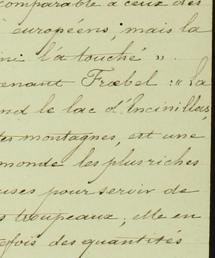 comparable à ceux des
européens, mais la
l'a touché ».
tenant Frœbel : "la
nd le lac d'Encinillas,
montagnes, est une
monde les plus riches
uses pour servir de
troupeaux ; elle en
fois des quantités